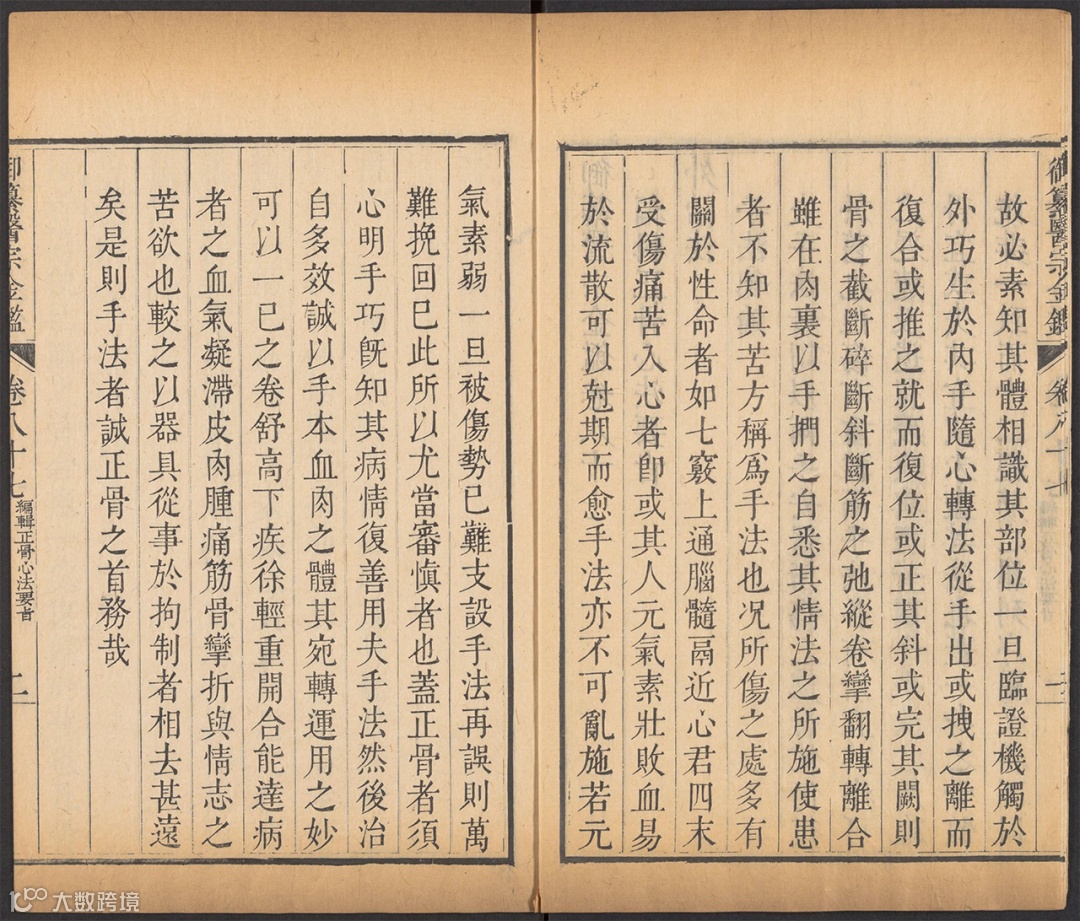 御纂醫宗金鑑
故必素知其體相識其部位一旦臨證機觸於
外巧生於內手隨心轉法從手出或拽之離而
復合或推之就而復位或正其斜或完其闕則
骨之截斷碎斷斜斷筋之弛縱卷攣翻轉離合
雖在肉裏以手捫之自悉其情法之所施使患
者不知其苦方稱爲手法也况所傷之處多有
關於性命者如七竅上通腦髓鬲近心君四末
受傷痛苦入心者卽或其人元氣素壯敗血易
於流散可以尅期而愈手法亦不可亂施若元
氣素弱一旦被傷勢已難支設手法再誤則萬
難挽回已此所以尤當審愼者也蓋正骨者須
心明手巧旣知其病情復善用夫手法然後治
自多效誠以手本血肉之體其宛轉運用之妙
可以一已之卷舒高下疾徐輕重開合能達病
者之血氣凝滯皮肉腫痛筋骨攣折與情志之
苦欲也較之以器具從事於拘制者相去甚遠
矣是則手法者誠正骨之首務哉
御纂醫宗金鑑
卷八十七
編輯正骨心法要旨
二
大数跨境